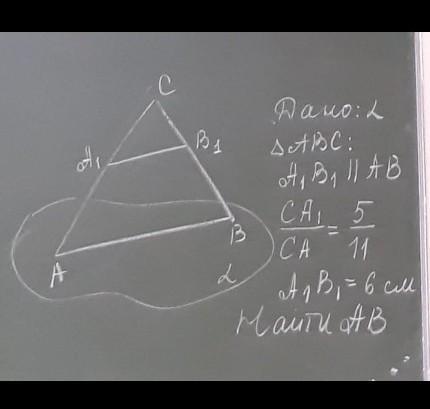 C
A₁
B₁
A
B
α
Дано: α
△ABC:
A₁B₁ ∥ AB
CA₁/CA = 5/11
A₁B₁ = 6 см
Найти AB